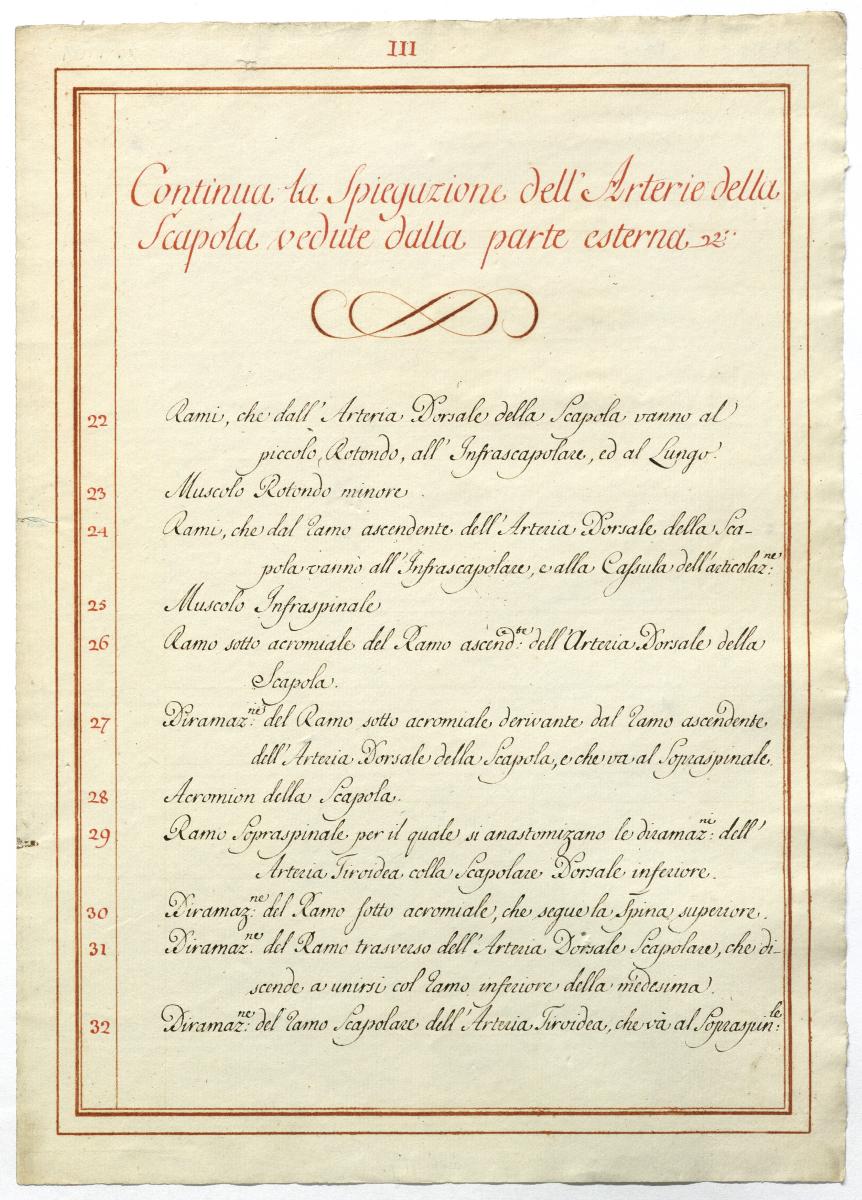 III
Continua la Spiegazione dell'Arterie della
Scapola vedute dalla parte esterna
22 Rami, che dall'Arteria Dorsale della Scapola vanno al
piccolo Rotondo, all'Infrascapolare, ed al Lungo.
23 Muscolo Rotondo minore.
24 Rami, che dal ramo ascendente dell'Arteria Dorsale della Sca-
pola vanno all'Infrascapolare, e alla Cassula dell'articolaz:ne
25 Muscolo Infraspinale
26 Ramo sotto acromiale del Ramo ascend:te dell'Arteria Dorsale della
Scapola.
27 Diramaz:ne del Ramo sotto acromiale derivante dal ramo ascendente
dell'Arteria Dorsale della Scapola, e che va al Sopraspinale.
28 Acromion della Scapola.
29 Ramo Sopraspinale per il quale si anastomizano le diramaz:ni dell'
Arteria Tiroidea colla Scapolare Dorsale inferiore.
30 Diramaz:ne del Ramo sotto acromiale, che segue la Spina superiore.
31 Diramaz:ne del Ramo trasverso dell'Arteria Dorsale Scapolare, che di-
scende a unirsi col ramo inferiore della medesima.
32 Diramaz:ne del ramo Scapolare dell'Arteria Tiroidea, che và al Sopraspin:le